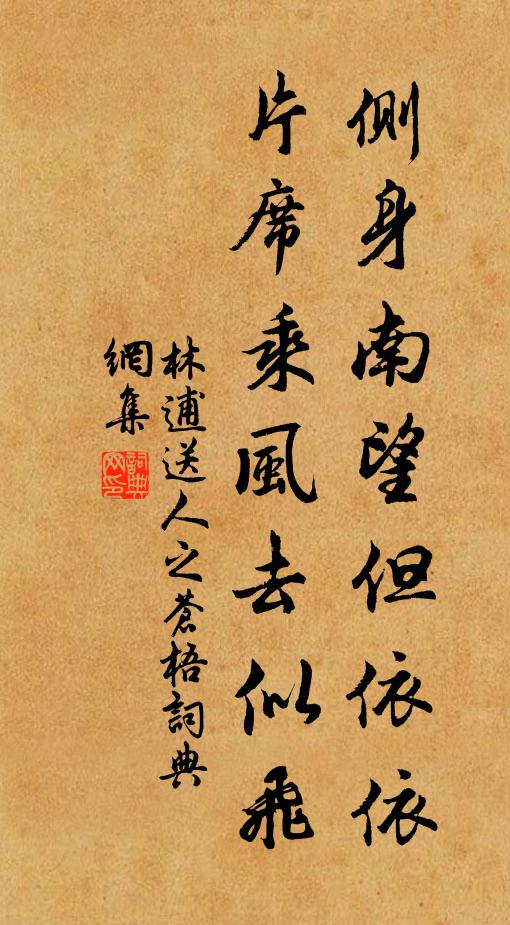 側身南望但依依
片席乘風去似飛
林逋送人之蒼梧詞典
網集
詞典網印